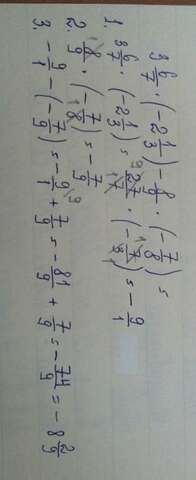 3 6/7 · (-2 1/3) - 8/9 · (-7/8) =
1. 3 6/7 · (-2 1/3) = 27/7 · (-7/3) = -9/1
2. 8/9 · (-7/8) = -7/9
3. -9/1 - (-7/9) = -9/1 + 7/9 = -81/9 + 7/9 = -74/9 = -8 2/9